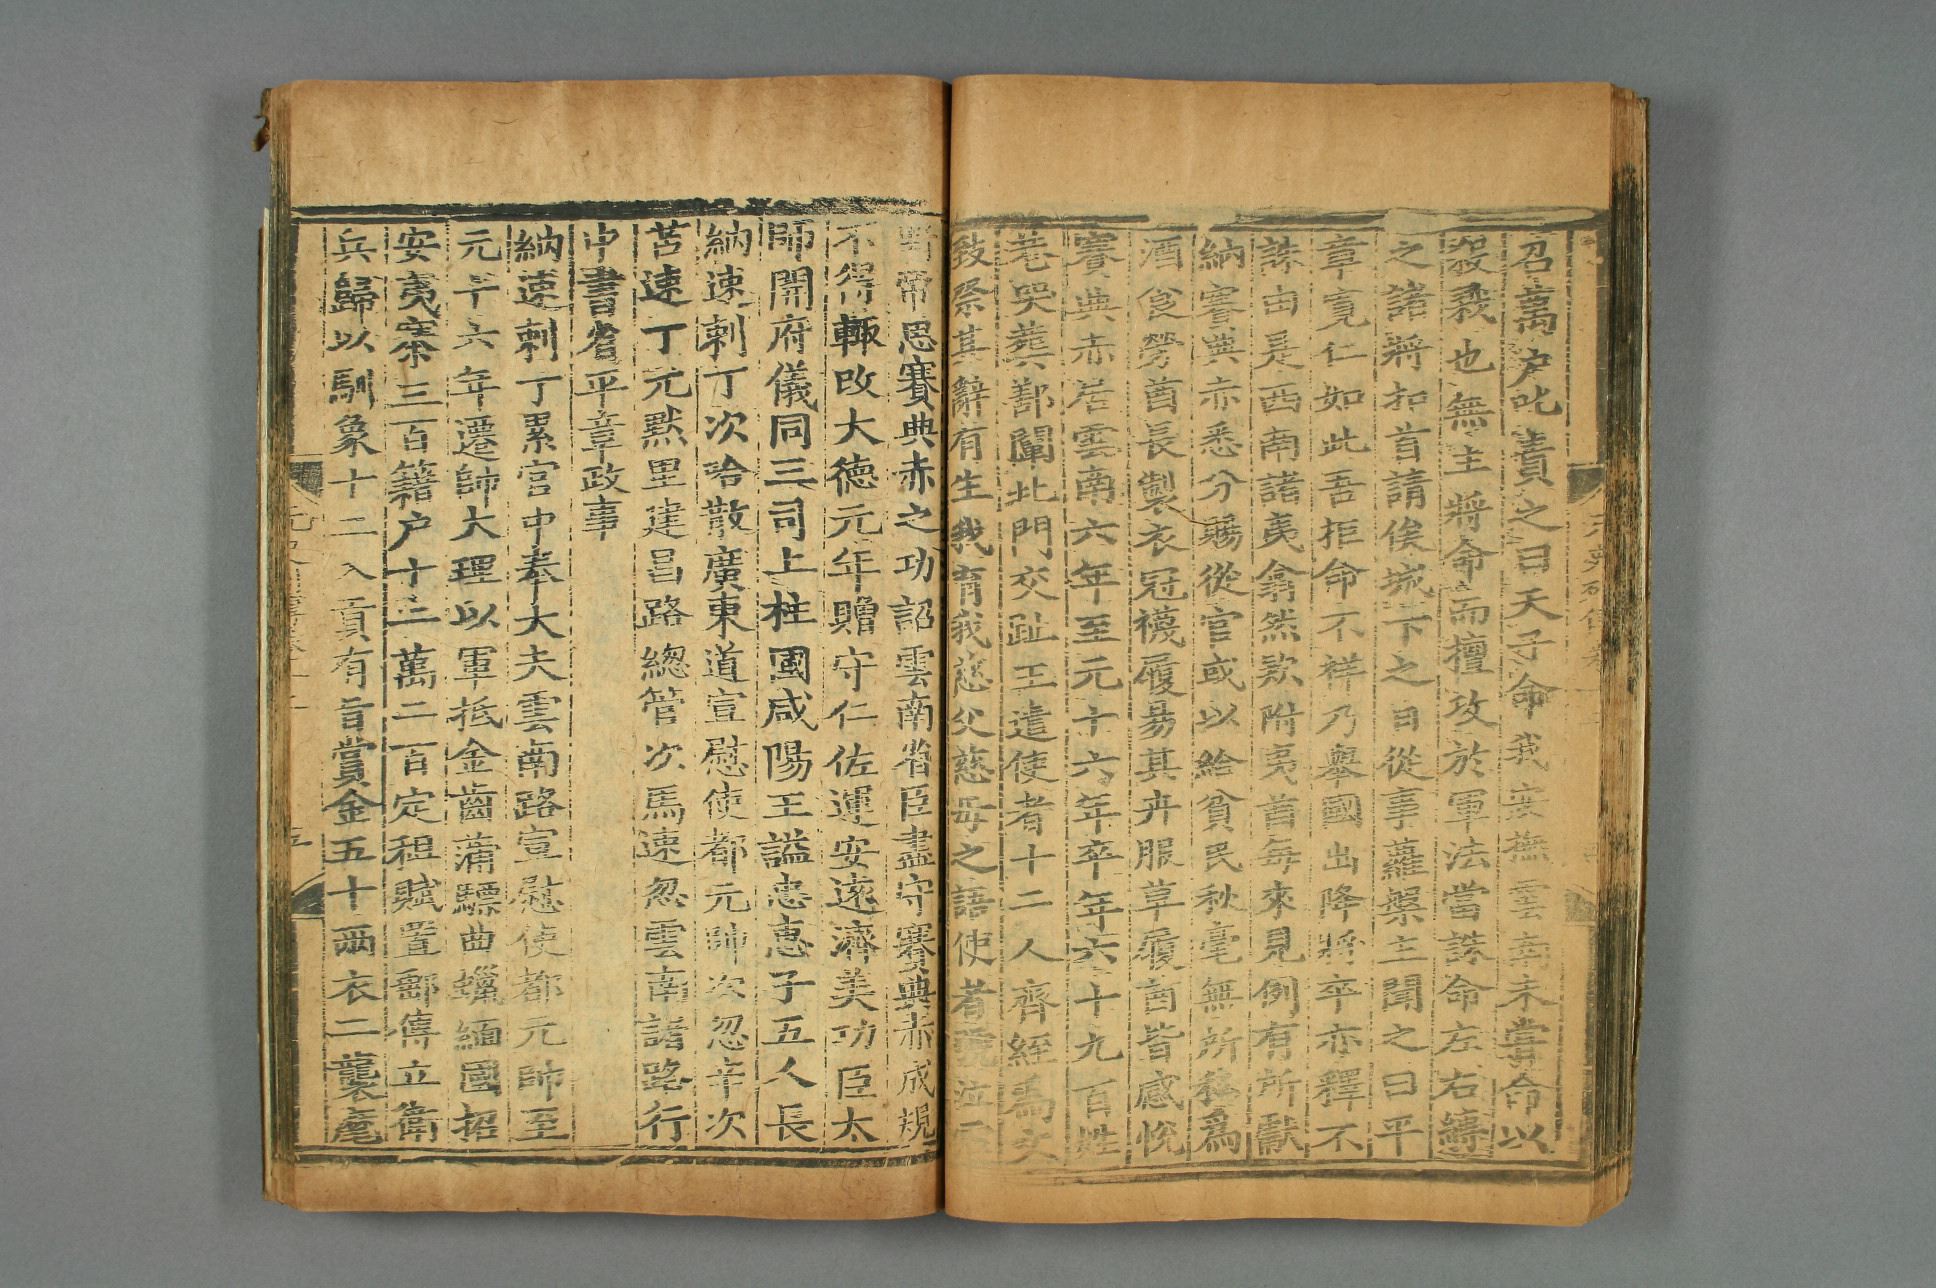 召萬户叱責之曰天子命我安撫雲南未嘗命以
殺戮也無主將命而擅攻於軍法當誅命左右縛
之諸將扣首請俟城下之日從事蘿槃主聞之曰平
章寬仁如此吾拒命不祥乃舉國出降將卒亦釋不
誅由是西南諸夷翕然款附夷酋每來見例有所獻
納賽典赤悉分賜從官或以給貧民秋毫無所私爲
酒食勞酋長製衣冠襪履易其卉服草履酋皆感悦
賽典赤居雲南六年至元十六年卒年六十九百姓
巷哭葬鄯闡北門交趾王遣使者十二人齊絰爲文
致祭其辭有生我育我慈父慈母之語使者號泣震
野帝思賽典赤之功詔雲南省臣盡守賽典赤成規
不得輒改大德元年贈守仁佐運安遠濟美功臣太
師開府儀同三司上柱國咸陽王謚忠惠子五人長
納速剌丁次哈散廣東道宣慰使都元帥次忽辛次
苫速丁兀默里建昌路總管次馬速忽雲南諸路行
中書省平章政事
納速剌丁累官中奉大夫雲南路宣慰使都元帥至
元十六年遷帥大理以軍抵金齒蒲驃曲蠟緬國招
安夷寨三百籍户十二萬二百定租賦置郵傳立衛
兵歸以馴象十二入貢有旨賞金五十兩衣二襲麾